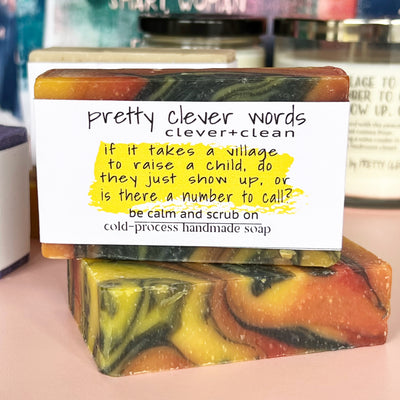 SMART WOMAN
pretty clever words
clever+clean
if it takes a village
to raise a child, do
they just show up, or
is there a number to call?
be calm and scrub on
cold-process handmade soap
VILLAGE TO
SHOW UP,
by PRETTY CLE